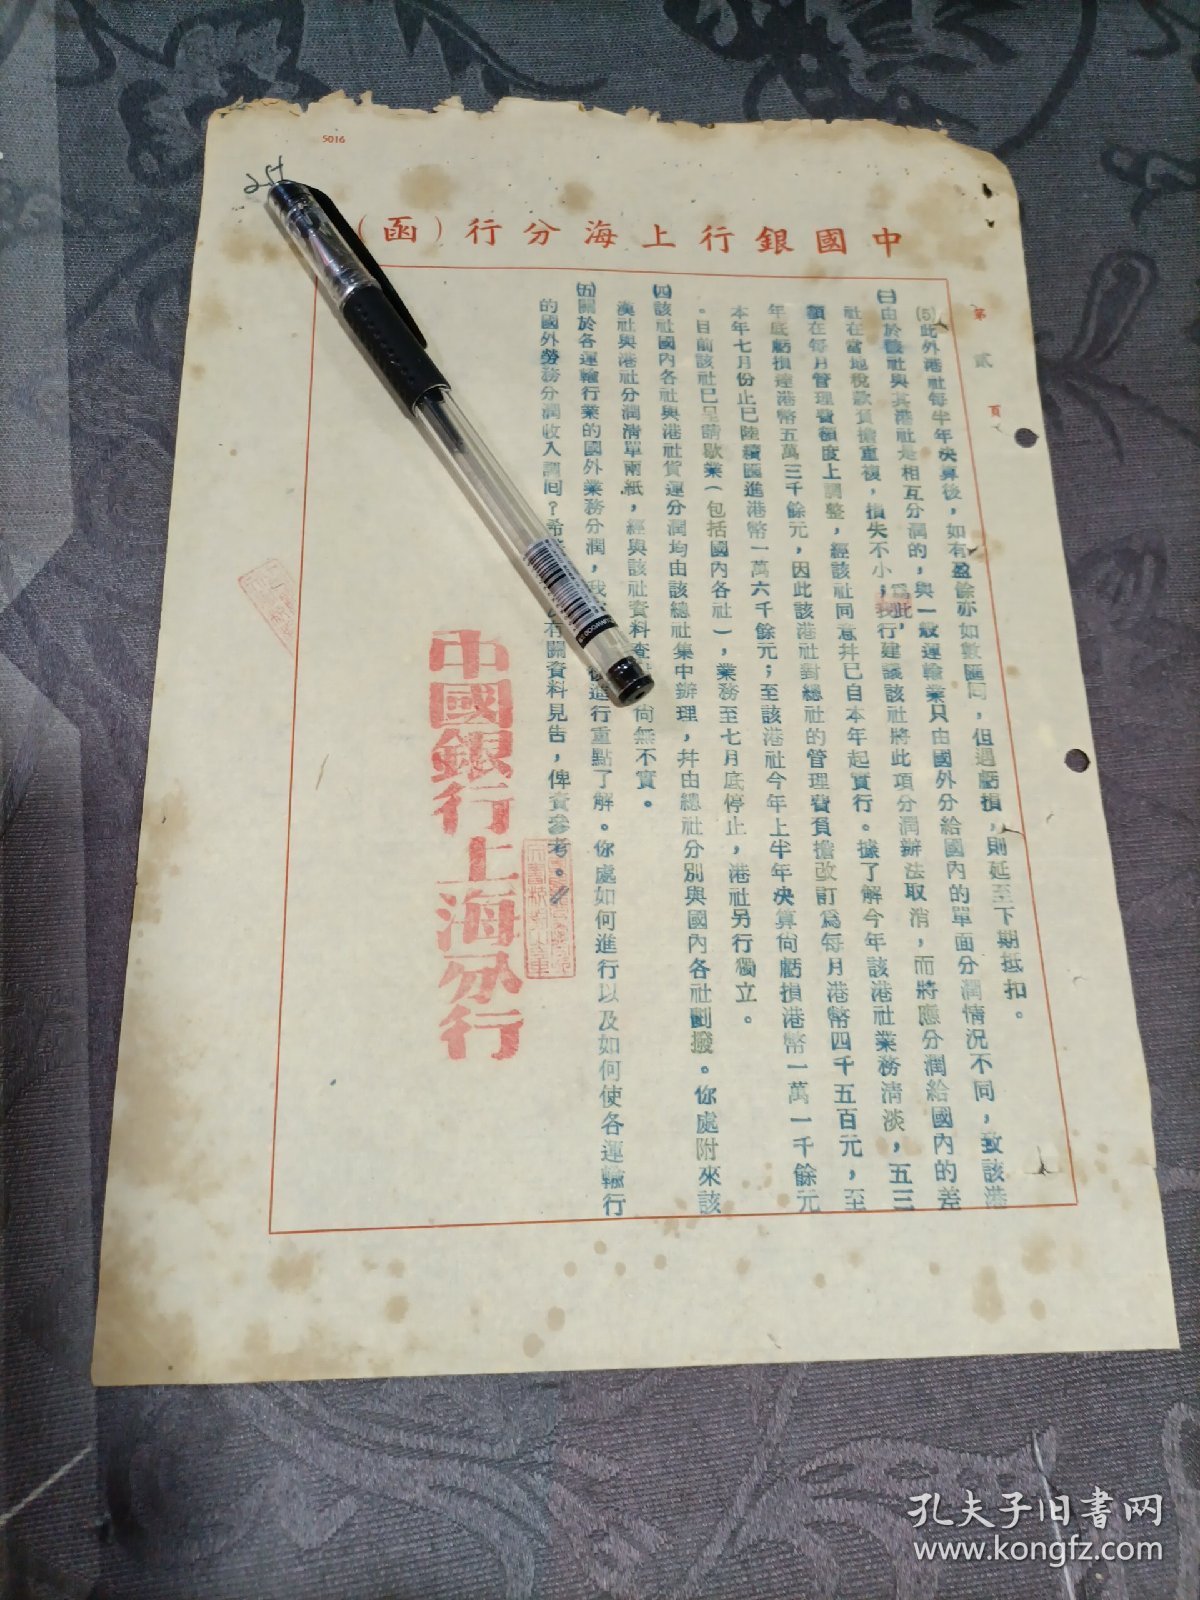 5016
中國銀行上海分行(函)
第貳頁
(5)此外港社每半年決算後，如有盈餘亦如數匯回，但遇虧損，則延至下期抵扣。
㈢由於該社與其港社是相互分潤的，與一般運輸業只由國外分給國內的單面分潤情況不同，致該港
社在當地稅款負擔重複，損失不小，爲此，我行建議該社將此項分潤辦法取消，而將應分潤給國內的差
額在每月管理費額度上調整，經該社同意幷已自本年起實行。據了解今年該港社業務清淡，五三
年底虧損達港幣五萬三千餘元，因此該港社對總社的管理費負擔改訂爲每月港幣四千五百元，至
本年七月份止已陸續匯進港幣一萬六千餘元；至該港社今年上半年決算尙虧損港幣一萬一千餘元
。目前該社已呈請歇業（包括國內各社），業務至七月底停止，港社另行獨立。
㈣該社國內各社與港社貨運分潤均由該總社集中辦理，幷由總社分別與國內各社劃撥。你處附來該
漢社與港社分潤清單兩紙，經與該社資料查 尙無不實。
㈤關於各運輸行業的國外業務分潤，我 進行重點了解。你處如何進行以及如何使各運輸行
的國外勞務分潤收入調回？希 有關資料見告，俾資參考。
中國銀行上海分行
孔夫子旧书网
www.kongfz.com